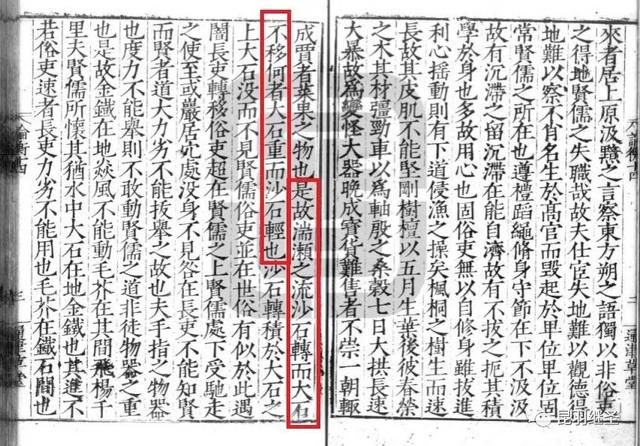 來者居上原汲黯之言察東方朔之語獨以非俗吏
之得地賢儒之失職哉故夫仕宦失地難以觀德得
地難以察不肖名生於高官而毀起於卑位卑位固
常賢儒之所在也遵禮蹈繩修身守節在下不汲汲
故有沉滯之留沉滯在能自濟故有不拔之扼其積
學於身也多故用心也固俗吏無以自修身雖拔進
利心搖動則有下道侵漁之操矣楓桐之樹生而速
長故其皮肌不能堅剛樹檀以五月生葉後彼春榮
之木其材彊勁車以為軸殷之桑穀七日大拱長速
大暴故為變怪大器晚成寶貨難售者不崇一朝輙
成賈者菜果之物也是故湍瀨之流沙石轉而大石
不移何者大石重而沙石輕也沙石轉積於大石之
上大石没而不見賢儒俗吏並在世俗有似於此遇
闇長吏轉移俗吏超在賢儒之上賢儒處下受馳走
之使至或巖居穴處没身不見咎在長吏不能知賢
而賢者道大力劣不能拔舉之故也夫手指之物器
也度力不能舉則不敢動賢儒之道非徒物器之重
也是故金鐵在地焱風不能動毛芥在其間飛揚千
里夫賢儒所懷其猶水中大石在地金鐵也其進不
若俗吏速者長吏力劣不能用也毛芥在鐵石間也
昆羽继圣